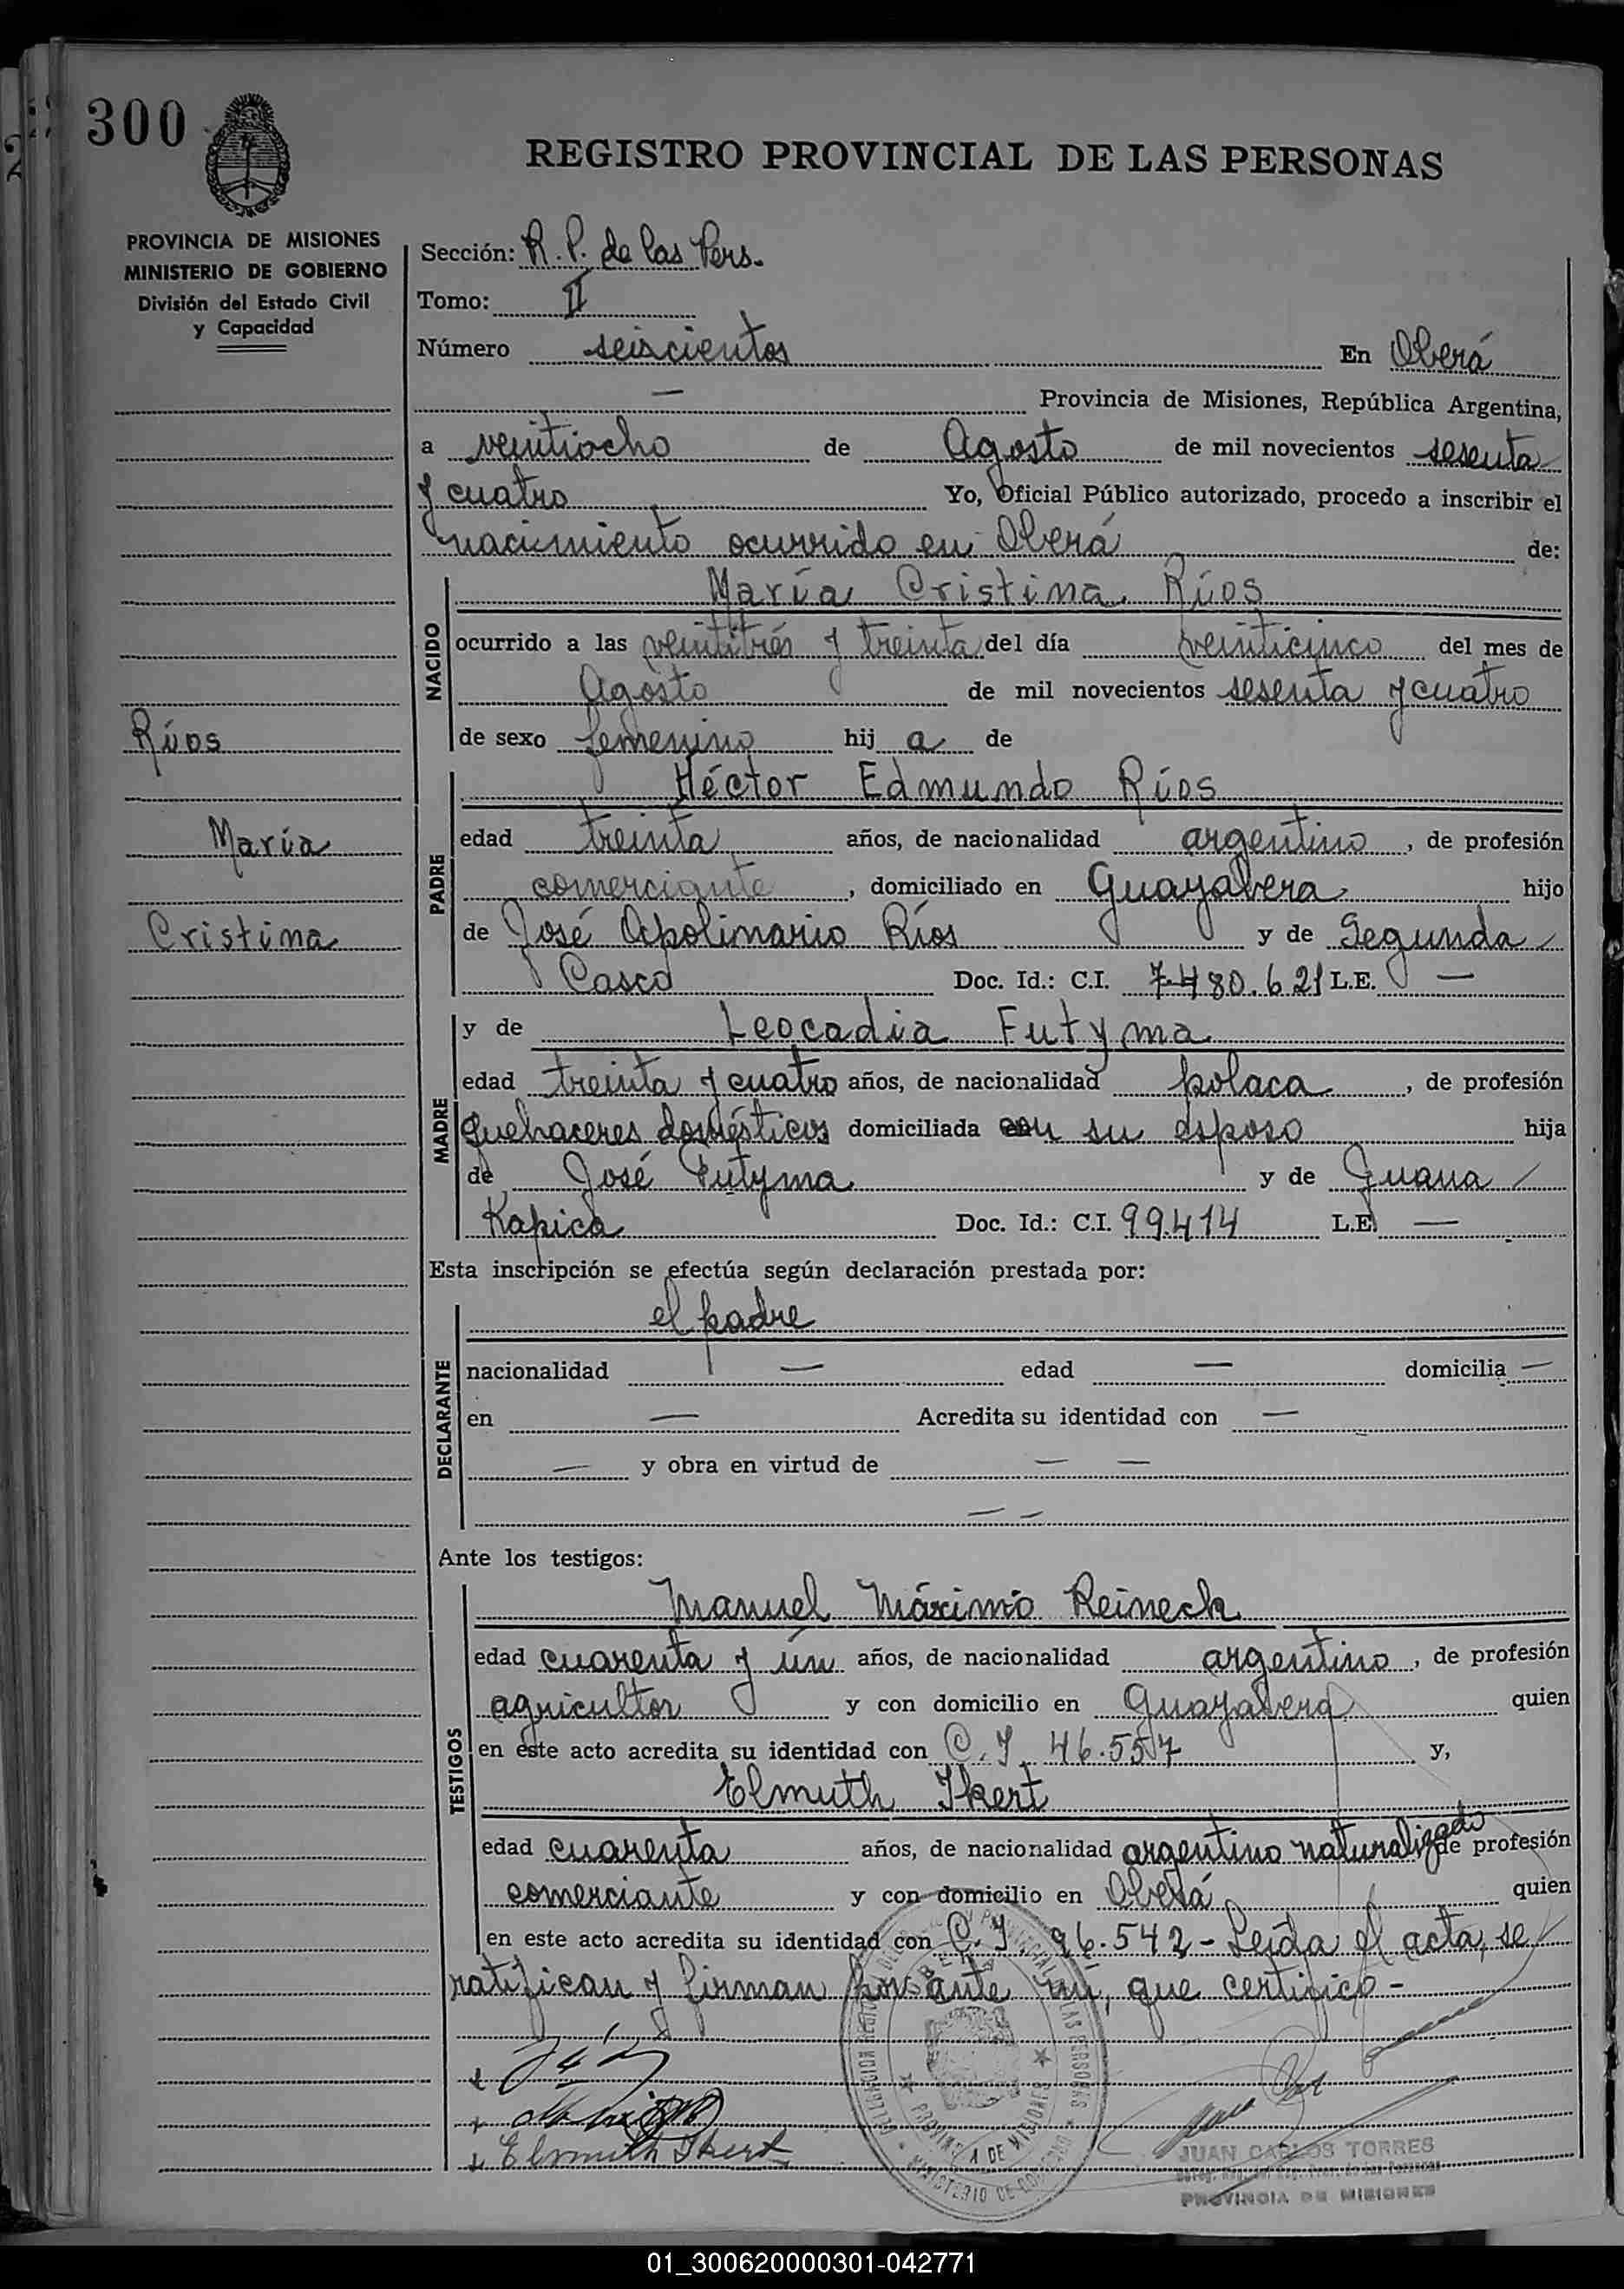 300
REGISTRO PROVINCIAL DE LAS PERSONAS
PROVINCIA DE MISIONES
MINISTERIO DE GOBIERNO
División del Estado Civil
y Capacidad
Sección: R. P. de las Pers.
Tomo: II
Número seiscientos En Oberá
— Provincia de Misiones, República Argentina,
a veintiocho de Agosto de mil novecientos sesenta
y cuatro Yo, Oficial Público autorizado, procedo a inscribir el
nacimiento ocurrido en Oberá de:
NACIDO
María Cristina Ríos
ocurrido a las veintitrés y treinta del día veinticinco del mes de
Agosto de mil novecientos sesenta y cuatro
de sexo femenino hij a de
Ríos
María
Cristina
PADRE
Héctor Edmundo Ríos
edad treinta años, de nacionalidad argentino, de profesión
comerciante, domiciliado en Guayabera hijo
de José Apolimario Ríos y de Segunda
Casco Doc. Id.: C.I. 7.480.621 L.E. —
MADRE
y de Leocadia Futyma
edad treinta y cuatro años, de nacionalidad polaca, de profesión
quehaceres domésticos domiciliada con su esposo hija
de José Futyma y de Juana
Kapica Doc. Id.: C.I. 99.414 L.E. —
Esta inscripción se efectúa según declaración prestada por:
DECLARANTE
el padre
nacionalidad — edad — domicilia —
en — Acredita su identidad con —
— y obra en virtud de — —
— —
Ante los testigos:
TESTIGOS
Manuel Máximo Reineck
edad cuarenta y un años, de nacionalidad argentino, de profesión
agricultor y con domicilio en Guayabera quien
en este acto acredita su identidad con C.I. 46.557 y,
Elmuth Ikert
edad cuarenta años, de nacionalidad argentino naturalizado de profesión
comerciante y con domicilio en Oberá quien
en este acto acredita su identidad con C.I. 96.542 - Leída el acta, se
ratifican y firman por ante mí, que certifico -
Elmuth Ikert
PROVINCIA DE MISIONES
MINISTERIO DE GOBIERNO
JUAN CARLOS TORRES
PROVINCIA DE MISIONES
01_300620000301-042771